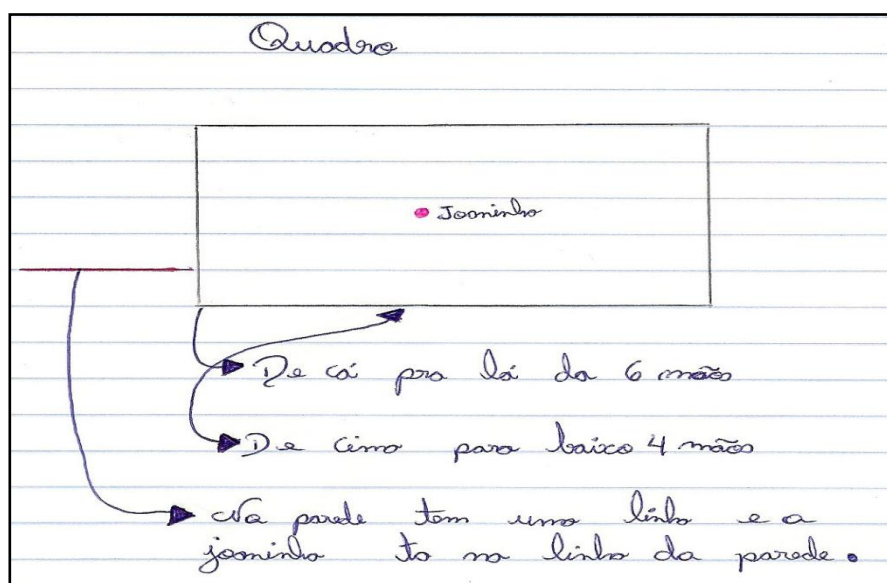 Quadro
Joaninha
De cá pra lá da 6 mãos
De cima para baixo 4 mãos
Na parede tem uma linha e a
joaninha ta na linha da parede.